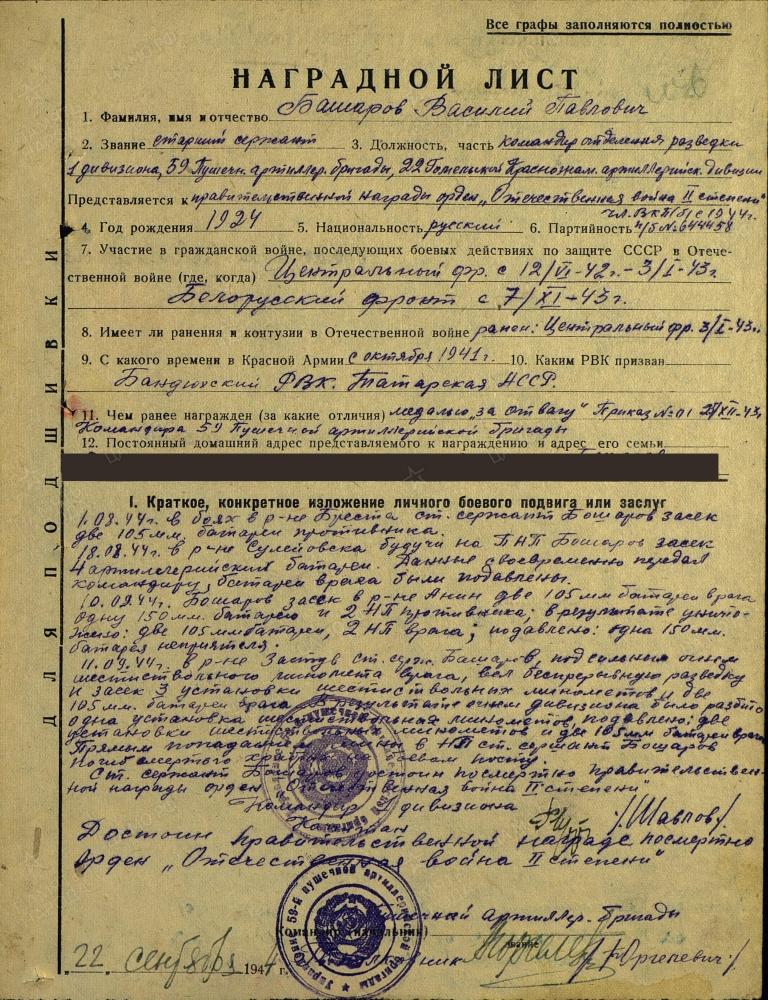 Все графы заполняются полностью
НАГРАДНОЙ ЛИСТ
1. Фамилия, имя и отчество Башаров Василий Павлович
2. Звание старший сержант 3. Должность, часть командир отделения разведки
1 дивизиона, 59 Пушечн. артиллер. бригады, 22 Гомельской Краснознам. артиллерийск. дивизии
Представляется к правительственной награды орден „Отечественная война II степени"
чл. ВКП/б/ с 1944г.
4. Год рождения 1924 5. Национальность русский 6. Партийность п/б № 644458
7. Участие в гражданской войне, последующих боевых действиях по защите СССР в Отече-
ственной войне (где, когда) Центральный фр. с 12/VI-42г.-3/I-43г.
Белорусский фронт с 7/XI-43г.
8. Имеет ли ранения и контузии в Отечественной войне ранен: Центральный фр. 3/I-43г.
9. С какого времени в Красной Армии с октября 1941г. 10. Каким РВК призван
Бандюхский РВК. Татарская АССР.
11. Чем ранее награжден (за какие отличия) медалью „за отвагу" Приказ №01 27/XII-43г.
Командира 59 Пушечной артиллерийской бригады
12. Постоянный домашний адрес представляемого к награждению и адрес его семьи
I. Краткое, конкретное изложение личного боевого подвига или заслуг
1.08.44г. в боях в р-не Бреста ст. сержант Бошаров засек
две 105мм. батареи противника.
18.08.44г. в р-не Сулейовска будучи на ПНП Бошаров засек
4 артиллерийских батареи. Данные своевременно передал
командиру, батареи врага были подавлены.
10.09.44г. Бошаров засек в р-не Анин две 105мм батареи врага
одну 150мм. батарею и 2 НП противника; в результате уничто-
жено: две 105мм батареи, 2 НП врага; подавлено: одна 150мм.
батарея неприятеля.
11.09.44г. в р-не Заступ ст. серж. Башаров под сильным огнем
шестиствольного миномета врага, вел беспрерывную разведку
и засек 3 установки шестиствольных минометов и две
105мм. батареи врага. В результате огнем дивизиона было разбито
одна установка шестиствольная минометов, подавлено: две
установки шестиствольных минометов и две 105мм батареи врага
Прямым попаданием мины в НП ст. сержант Бошаров
погиб смертью храбрых на боевом посту.
Ст. сержант Бошаров достоин посмертно правительствен-
ной награды орден „Отечественная война II степени"
Командир дивизиона
Капитан /Шавлов/
Достоин правительственной награде посмертно
Орден „Отечественная война II степени"
Пушечной артиллер. бригады
Командир (начальник)
звание
„22" сентября 1944 г.
Управление 59-й пушечной артиллерийской бригады
ДЛЯ ПОДШИВКИ